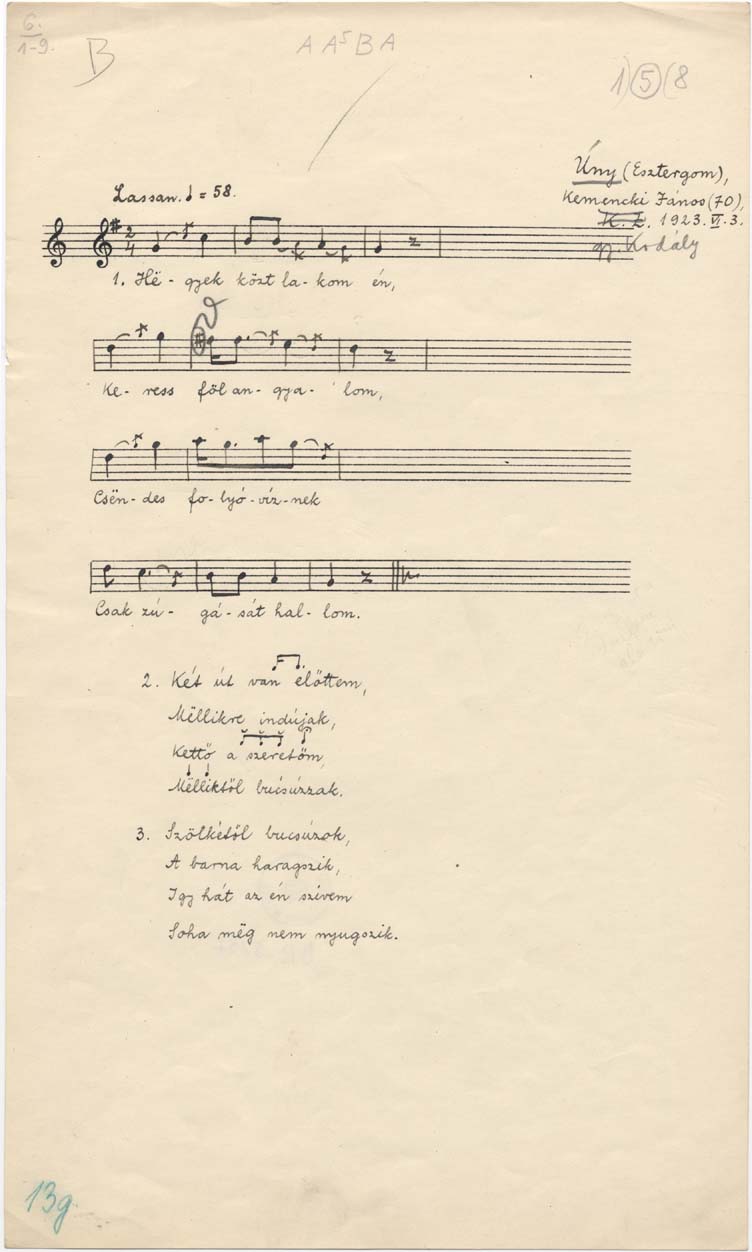 6.
1-9.
B
A A⁵ B A
1) 5 (8
Úny (Esztergom),
Kemencki János (70),
K. Z. 1923. VI. 3.
gy. Kodály
Lassan. = 58.
2
4
1. Hë - gyek közt la - kom én,
Ke - ress föl an - gya - lom,
Csën - des fo - lyó - víz - nek
Csak zú - gá - sát hal - lom.
2. Két út van előttem,
Mëllikre indújak,
Kettő a szeretőm,
Mëlliktől bucsúzzak.
3. Szölkétől bucsúzok,
A barna haragszik,
Igy hát az én szívem
Soha mëg nem nyugszik.
13g